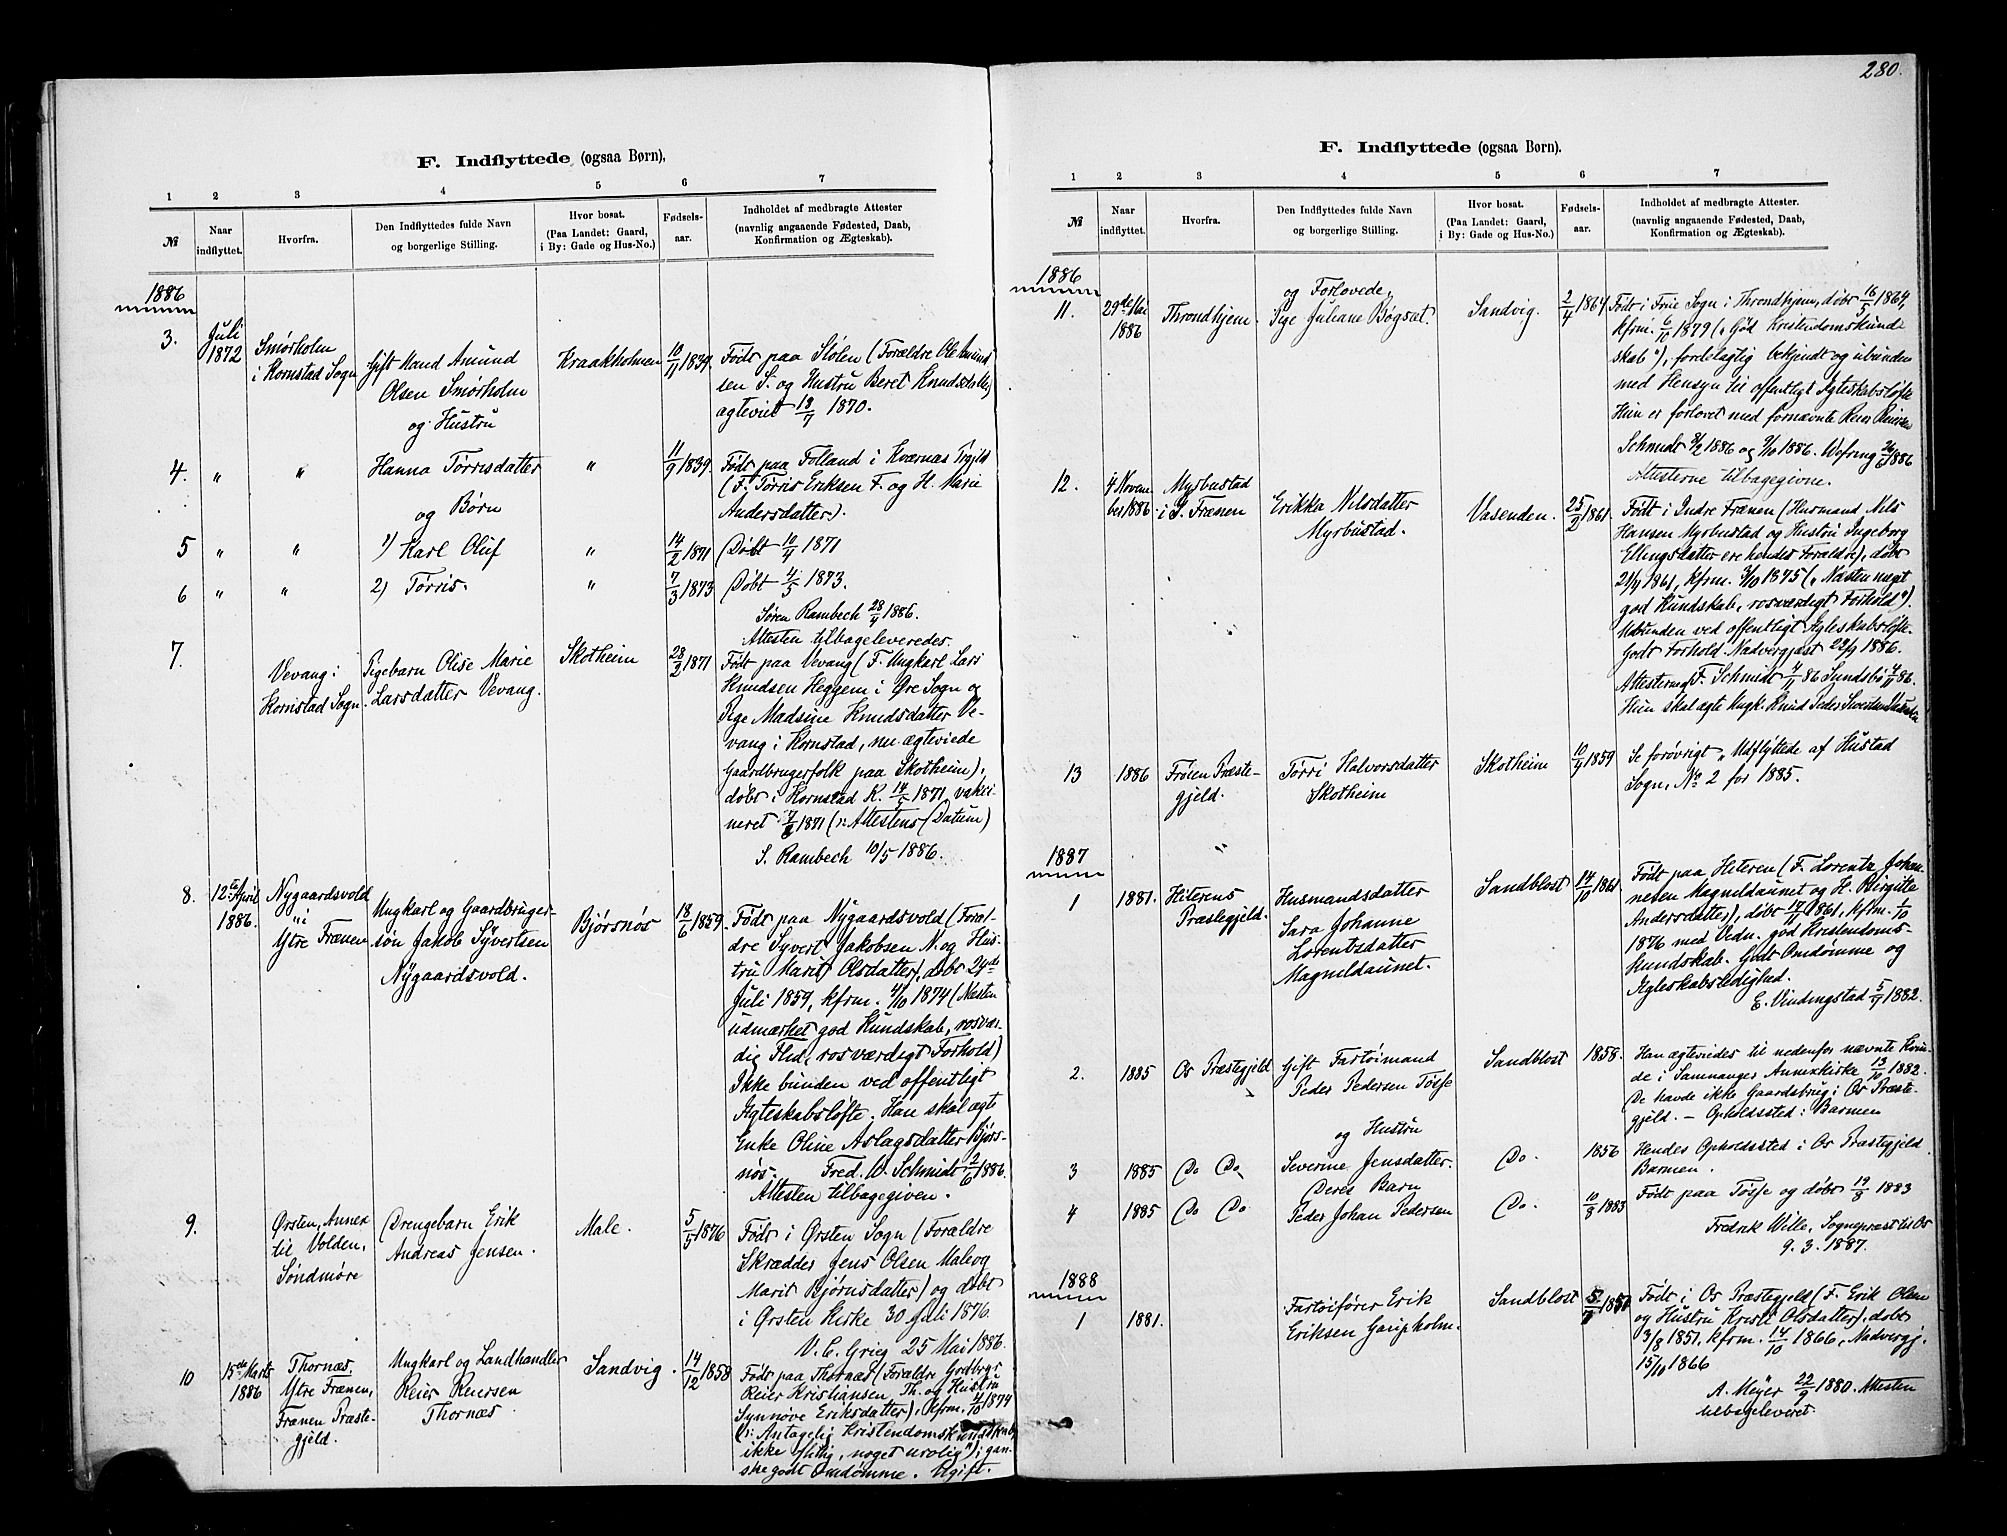 F. Indflyttede (ogsaa Børn),
1 2 3 4 5 6 7
№
Naar indflyttet.
Hvorfra.
Den Indflyttedes fulde Navn og borgerlige Stilling.
Hvor bosat. (Paa Landet: Gaard, i By: Gade og Hus-No.)
Fødsels-aar.
Indholdet af medbragte Attester (navnlig angaaende Fødested, Daab, Konfirmation og Ægteskab).
1886
3.
Juli
1872
Smørholm
i Kornstad Sogn
Gift Mand Amund
Olsen Smørholm
og Hustru
Kraakholmen
10/11 1839
Født paa Stølen (Forældre Ole Amund
sen S. og Hustru Beret Knudsdatter,
ægteviet 18/7 1870.
4. " "
Hanna Tørrisdatter
og Børn
"
11/9 1839
Født paa Folland i Kværnæs Prgjld
(F. Tørris Eriksen F. og H. Marie
Andersdatter).
5 " " 1) Karl Oluf " 14/2 1871 Døbt 10/4 1871
6 " " 2) Tørris. " 7/3 1873 Døbt 4/5 1873.
Søren Rambech 28/4 1886.
Attesten tilbageleveredes.
7.
Vevang i
Kornstad Sogn
Pigebarn Olise Marie
Larsdatter Vevang.
Skotheim
28/2 1871
Født paa Vevang (F. Ungkarl Lars
Knudsen Heggem i Øre Sogn og
Pige Madsine Knudsdatter Ve-
vang i Kornstad, nu ægteviede
Gaardbrugerfolk paa Skotheim),
døbt i Kornstad K. 14/5 1871, vakci
neret 7/8 1871 (ɔ: Attestens Datum)
S. Rambech 10/5 1886.
8.
12te April
1886.
Nygaardsvold
i
Ytre Frænen
Ungkarl og Gaardbruger-
søn Jakob Syvertsen
Nygaardsvold.
Bjørsnøs
18/6 1859.
Født paa Nygaardsvold (Foræl-
dre Syvert Jakobsen N. og Hus-
tru Marit Olsdatter), døbt 24de
Juli 1859, kfrm. 4/10 1874 (Næsten
udmærket god Kundskab, rosvær-
dig Flid, rosværdigt Forhold)
Ikke bunden ved offentligt
Ægteskabsløfte. Han skal ægte
Enke Oline Aslagsdatter Bjørs-
nøs. Fred. W. Schmidt 2/6 1886.
Attesten tilbagegiven.
9.
Ørsten, Annex
til Volden,
Søndmøre
Drengebarn Erik
Andreas Jensen.
Male.
5/5 1876
Født i Ørsten Sogn (Forældre
Skrædder Jens Olsen Male og
Marit Bjørnsdatter) og døbt
i Ørsten Kirke 30 Juli 1876.
V. C. Grieg 25 Mai 1886.
10
15de Marts
1886
Thornæs
Ytre Frænen,
Frænen Præste-
gjeld.
Ungkarl og Landhandler
Reier Reiersen
Thornæs
Sandvig.
14/12 1858
Født paa Thornæs (Forældre Grdbrgr
Reier Kristiansen Th. og Hustru
Synnøve Eriksdatter). Kfrm. 4/10 1874
(ɔ: Antagelig Kristendomskundskab,
ikke flittig, noget urolig"); gan-
ske godt Omdømme. Ugift.
280.
F. Indflyttede (ogsaa Børn).
1 2 3 4 5 6 7
№
Naar indflyttet.
Hvorfra.
Den Indflyttedes fulde Navn og borgerlige Stilling.
Hvor bosat. (Paa Landet: Gaard, i By: Gade og Hus-No.)
Fødsels-aar.
Indholdet af medbragte Attester. (navnlig angaaende Fødested, Daab, Konfirmation og Ægteskab).
1886
11.
29de Mai
1886
Throndhjem.
og Forlovede,
Pige Juliane Bogsæt.
Sandvig.
2/4 1864
Født i Frue Sogn i Throndhjem, døbt 16/5 1864,
kfrm. 6/10 1879 („God Kristendomskund-
skab"), fordelagtig bekjendt og ubunden
med Hensyn til offentligt Ægteskabsløfte
Hun er forlovet med fornævnte Reier Reiersen
Schmidt 9/2 1886 og 9/10 1886.
Attesterne tilbagegivne.
12.
4 Novem
ber 1886
Myrbustad
i I. Frænen
Erikka Nilsdatter
Myrbustad.
Vasenden.
25/2 1861
Født i Indre Frænen (Husmand Nils
Hansen Myrbustad og Hustru Ingeborg
Ellingsdatter ere hendes Forældre), døbt
21/4 1861, kfrm. 3/10 1875 („Næsten meget
god Kundskab, rosværdigt Forhold").
Ubunden ved offentligt Ægteskabsløfte.
Godt Forhold. Nadvergjæst 22/9 1886.
Attesterne F. Schmidt 4/11 86 Sundsbø 4/11 86.
Hun skal ægte Ungk. Knud Peder Sivertsen
13
1886
Frøien Præste-
gjeld.
Tørri Halvorsdatter
Skotheim
Skotheim
10/9 1859
Se forøvrigt „Udflyttede af Hustad
Sogn, No 2 for 1885.
"
1887
1
1881.
Hiterens
Præstegjeld.
Husmandsdatter
Sara Johanne
Lorentsdatter
Magneldaunet.
Sandblost
14/10 1861
Født paa Hiteren (F. Lorentz Johan-
nesen Magneldaunet og H. Birgitte
Andersdatter), døbt 17/11 1861, kfrm. 1/10
1876 med Vedn. god Kristendoms-
kundskab. Godt Omdømme og
Ægteskabsledighed.
E. Vindingstad 5/9 1882.
2.
1885
Os Præstegjeld
Gift Fartøimand
Peder Pedersen Tøsse
Sandblost
1858.
Han ægteviedes til nedenfor nævnte Kvin-
de i Samnanger Annexkirke 13/10 1882.
De havde ikke Gaardsbrug i Os Præste-
gjeld. — Opholdssted: Barmen
og Hustru
3 1885 Do Do
Severine Jensdatter.
Do.
1856
Hendes Opholdssted i Os Præstegjeld
Barmen.
Deres Barn
4 1885 Do Do
Peder Johan Pedersen
Do.
10/8 1883
Født paa Tøsse og døbt 19/8 1883
Fredrik Wille, Sognepræst til Os
9. 3. 1887.
1888
1
1881.
Fartøifører Erik
Eriksen Garpholm.
Sandblost
1851
Født i Os Præstegjeld (F. Erik Olsen
og Hustru Kristi Olsdatter), døbt
3/8 1851, kfrm. 14/10 1866, Nadvergj.
15/10 1866
A. Meyer 22/9 1880. Attesten
tilbageleveret.